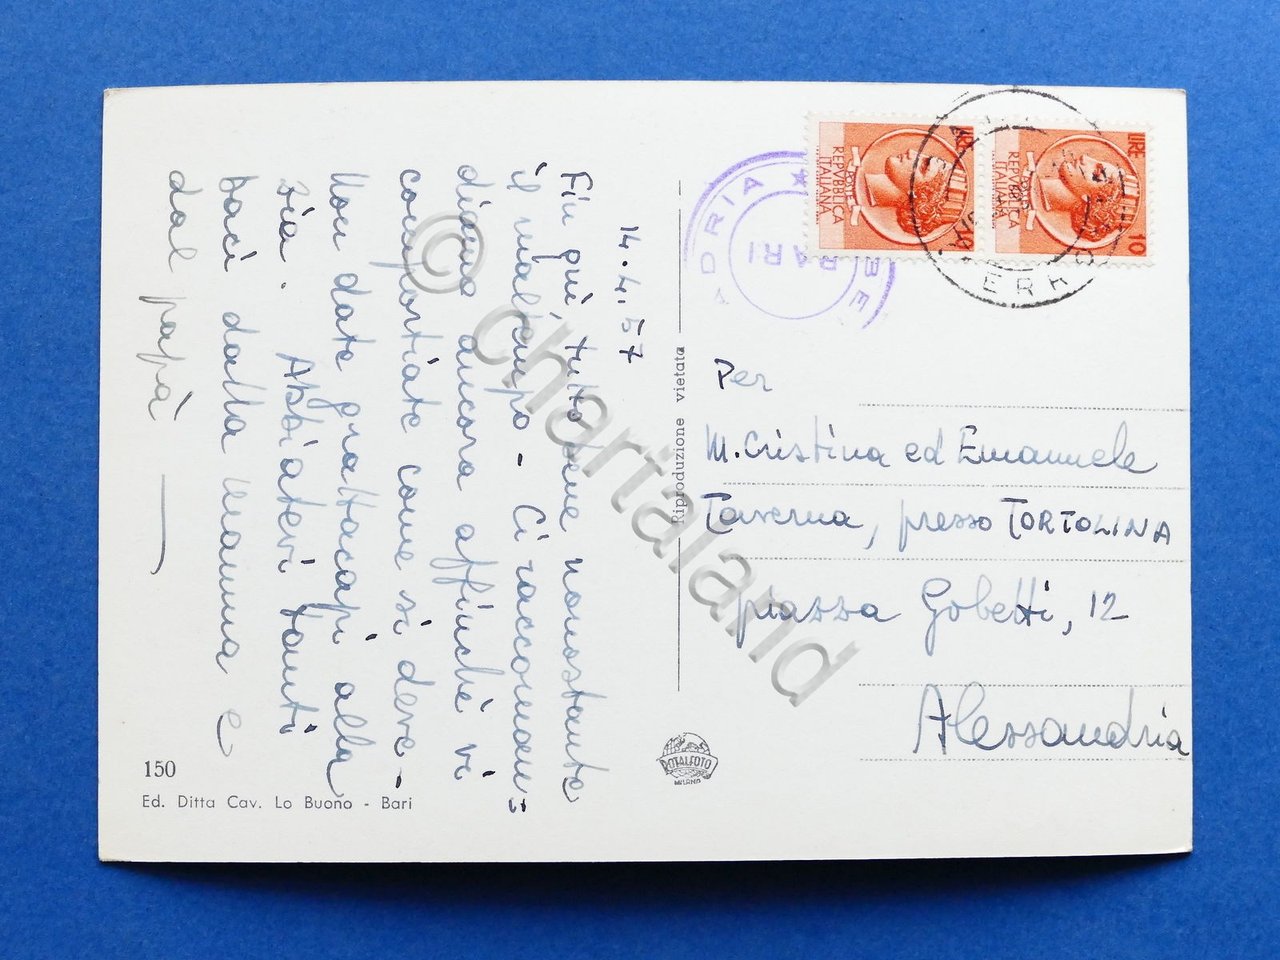 14.4.57
Fin qui tutto bene nonostante
il maltempo - Ci raccoman:
diamo ancora affinchè vi
comportiate come si deve -
Non date grattacapi alla
zia. Abbiatevi tanti
baci dalla mamma e
dal papà
150
Ed. Ditta Cav. Lo Buono - Bari
Riproduzione vietata
ROTALFOTO
MILANO
ADRIA ★
BARI
LIRE
REPVBBLICA
ITALIANA
LIRE 10
REPVBBLICA
ITALIANA
Per
M. Cristina ed Emanuele
Taverna, presso TORTOLINA
piazza Gobetti, 12
Alessandria
© chartaland